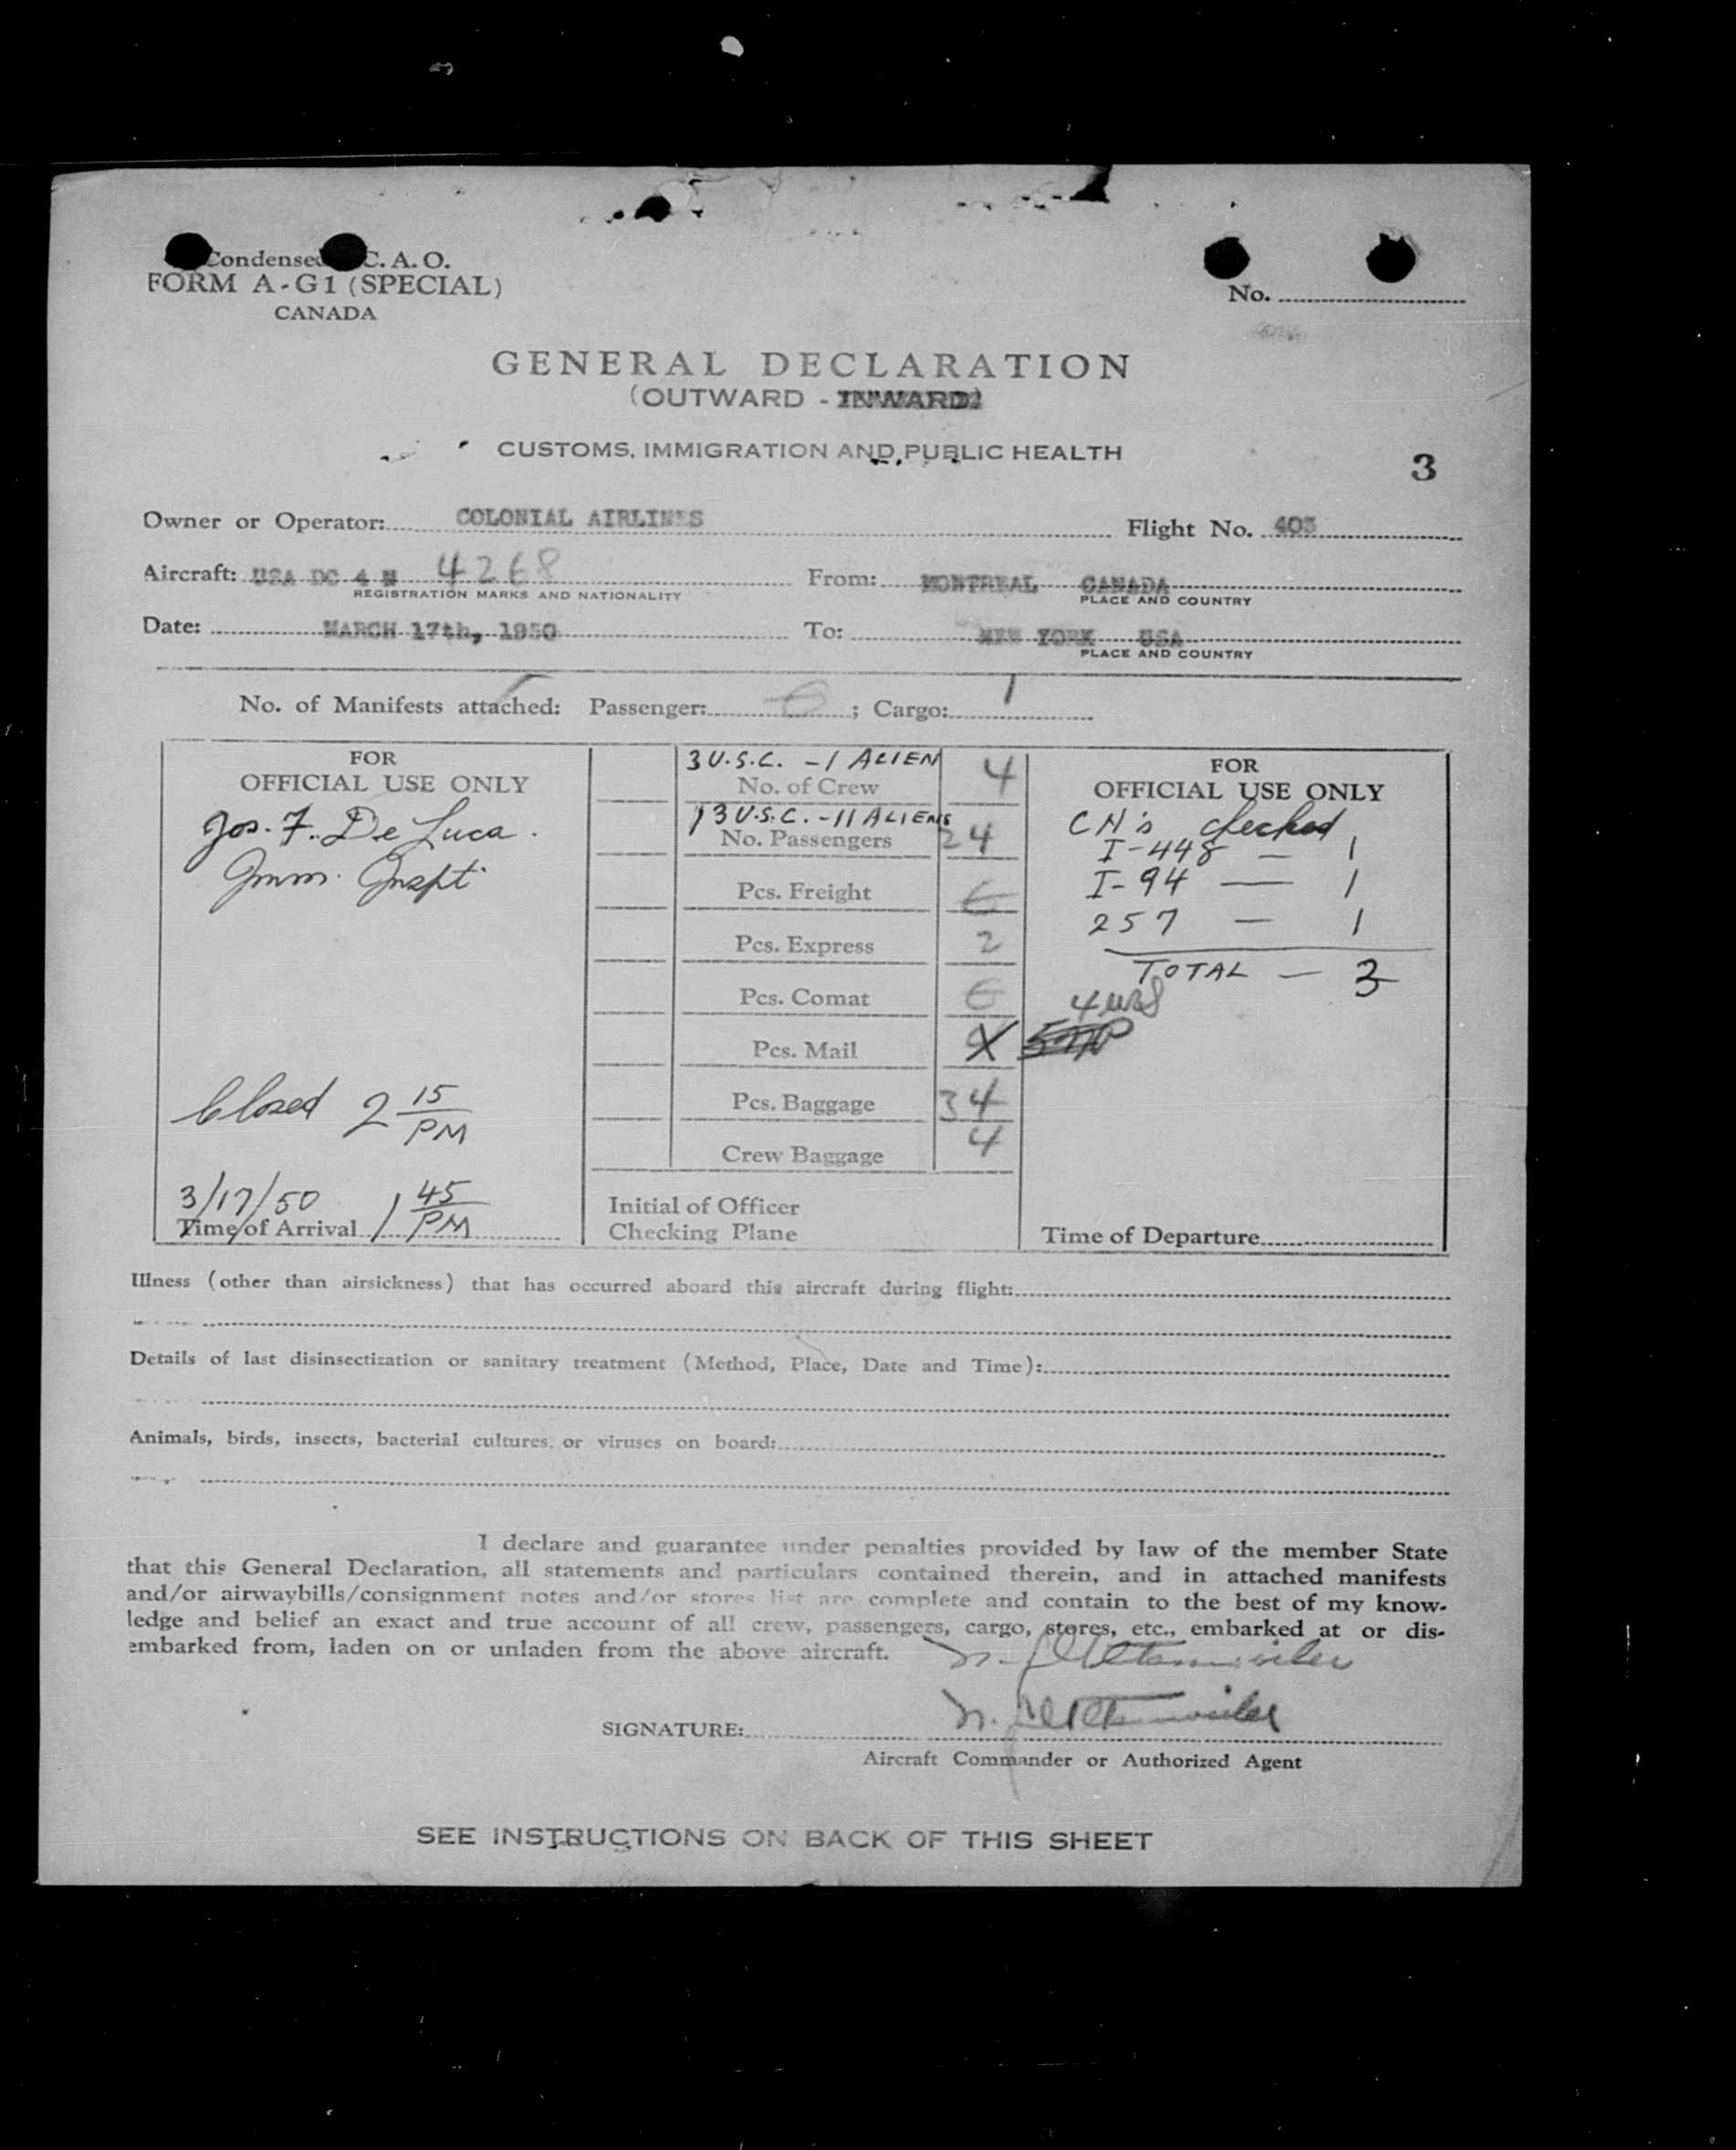 Condensed C. A. O.
FORM A-G1 (SPECIAL)
CANADA
No.
GENERAL DECLARATION
(OUTWARD - INWARD)
CUSTOMS, IMMIGRATION AND PUBLIC HEALTH
3
Owner or Operator: COLONIAL AIRLINES Flight No. 403
Aircraft: USA DC 4 N 4268 From: MONTREAL CANADA
REGISTRATION MARKS AND NATIONALITY PLACE AND COUNTRY
Date: MARCH 17th, 1950 To: NEW YORK USA
PLACE AND COUNTRY
No. of Manifests attached: Passenger: ; Cargo: 1
FOR
OFFICIAL USE ONLY
Jos. F. De Luca.
Imm. Inspt.
Closed 2 15
PM
3/17/50 1 45
Time of Arrival PM
3 U.S.C. - 1 ALIEN
No. of Crew 4
13 U.S.C. - 11 ALIENS
No. Passengers 24
Pcs. Freight
Pcs. Express 2
Pcs. Comat
Pcs. Mail X
Pcs. Baggage 34
Crew Baggage 4
Initial of Officer
Checking Plane
FOR
OFFICIAL USE ONLY
CN's checked
I-448 — 1
I-94 — 1
257 — 1
TOTAL — 3
Time of Departure
Illness (other than airsickness) that has occurred aboard this aircraft during flight:
Details of last disinsectization or sanitary treatment (Method, Place, Date and Time):
Animals, birds, insects, bacterial cultures, or viruses on board:
I declare and guarantee under penalties provided by law of the member State
that this General Declaration, all statements and particulars contained therein, and in attached manifests
and/or airwaybills/consignment notes and/or stores list are complete and contain to the best of my know-
ledge and belief an exact and true account of all crew, passengers, cargo, stores, etc., embarked at or dis-
embarked from, laden on or unladen from the above aircraft.
SIGNATURE:
Aircraft Commander or Authorized Agent
SEE INSTRUCTIONS ON BACK OF THIS SHEET